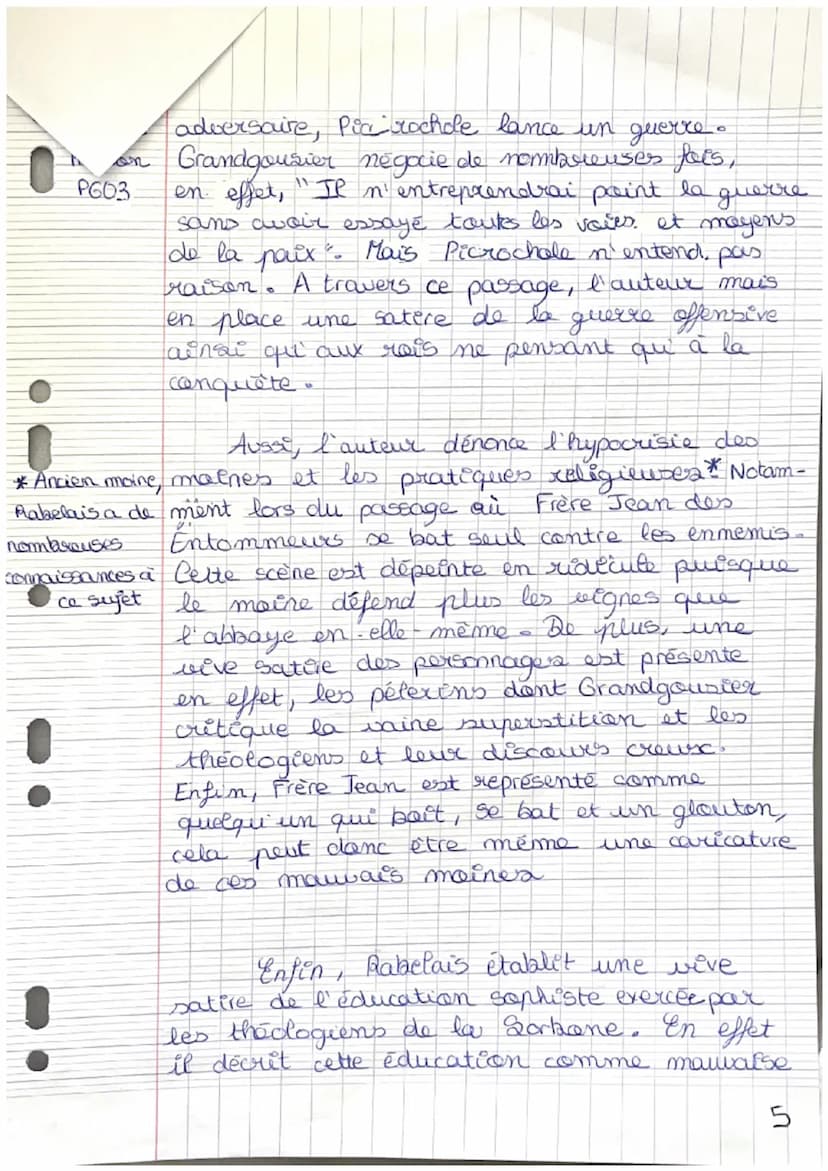 adversaire, Picrochole lance un guerre.
Grandgousier négocie de nombreuses fois,
PG03
en effet, "Il n'entreprendrai point la guerre
sans avoir essayé toutes les voies et moyens
de la paix". Mais Picrochole n'entend pas
raison. A travers ce passage, l'auteur mais
en place une satire de la guerre offensive
ainsi qu'aux rois ne pensant qu'à la
conquête.
Aussi, l'auteur dénonce l'hypocrisie des
moines et les pratiques religieuses* Notam-
ment lors du passage où Frère Jean des
Entommeurs se bat seul contre les ennemis.
Cette scène est dépeinte en ridicule puisque
le moine défend plus les vignes que
l'abbaye en-elle-même. De plus, une
vive satire des personnages est présente
en effet, les pélerins dont Grandgousier
critique la vaine superstition et les
théologiens et leur discours creux.
Enfin, Frère Jean est représenté comme
quelqu'un qui boit, se bat et un glouton,
cela peut donc être même une caricature
de ces mauvais moines
* Ancien moine,
Rabelais a de
nombreuses
connaissances à
ce sujet
Enfin, Rabelais établit une vive
satire de l'éducation sophiste exercée par
les théologiens de la Sorbone. En effet
il décrit cette éducation comme mauvaise
5